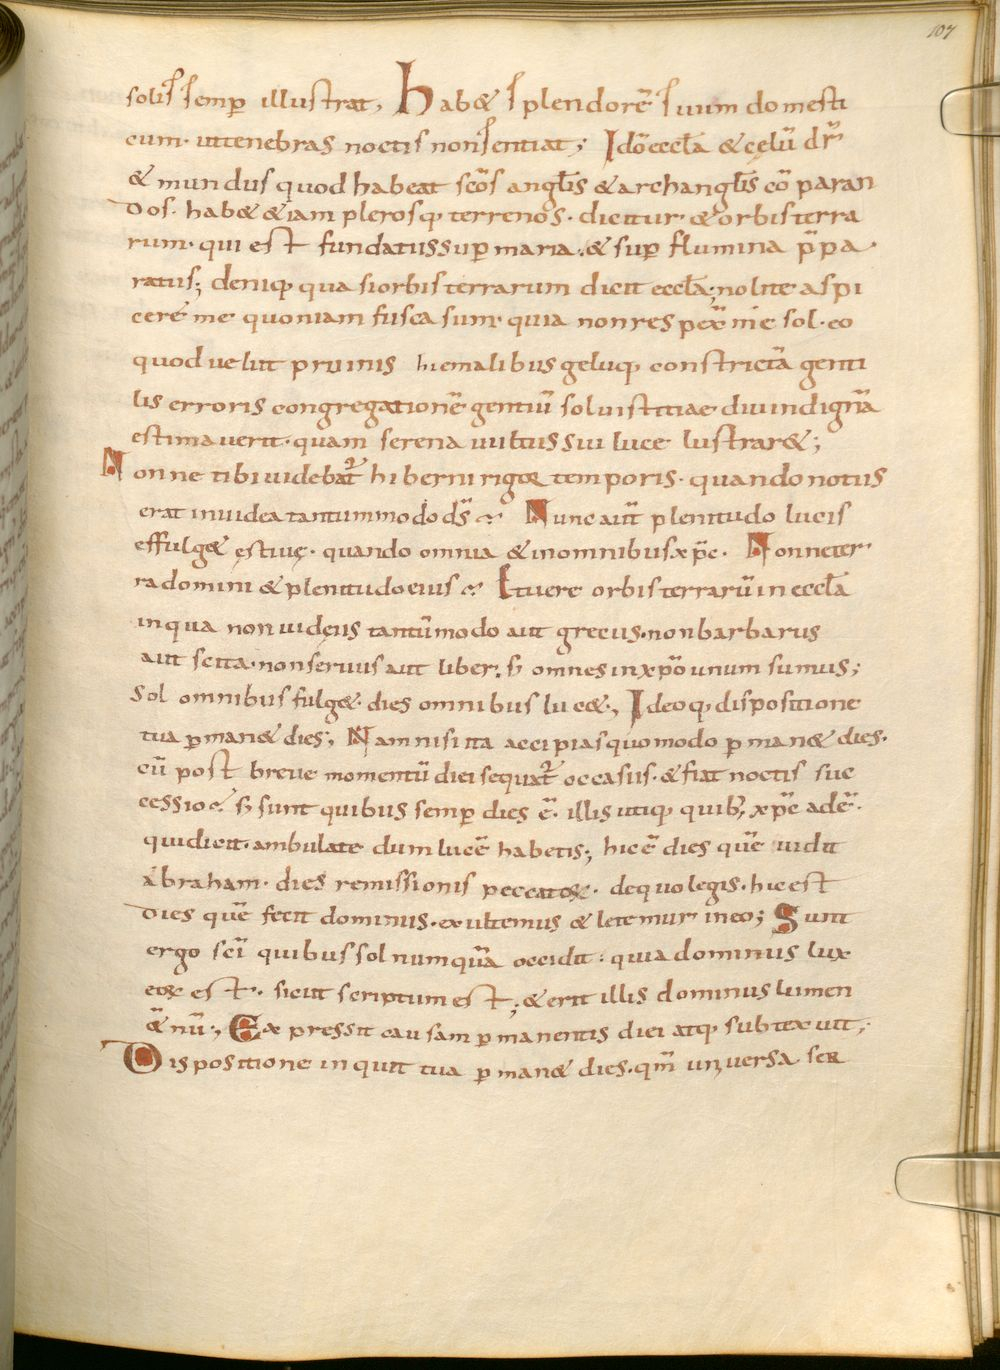 107
solis semp̄ illustrat, Hab& splendorē suum domesti
cum· uttenebras noctis nonsentiat; Idō eccl̄a & cęlū dr̄
& mundus quod habeat scōs angl̄is & archangl̄is cō paran
dos· hab& &iam plerosq; terrenos· dicitur & orbisterra
rum· qui est fundatussup̄ maria·& sup̄ flumina p̄pa·
ratus; deniq; quasiorbisterrarum dicit eccl̄a; nolite aspi
cere me quoniam fusca sum· quia nonrespex̄ me sol·eo
quod uelut pruinis hiemalibus geluq; constrictā genti
lis erroris congregationē gentiū soliustitiae diu indignā
estimauerit· quam serena uultussui luce lustrar&;
Nonne tibi uidebat᷑ hiberni rigor temporis· quando notus
erat iniudea tantummodo ds̄ Nunc aūt plenitudo lucis
effulg& ęstiuę· quando omnia & inomnibus xp̄c· Nonneter
ra domini & plenitudo eius Ituere orbis terrarū in eccl̄a
inqua non iudęus tantūmodo aut grecus· non barbarus
aut scita· non seruus aut liber· s; omnes inxp̄o unum sumus;
Sol omnibus fulg&· dies omnibus luc&·, Ideoq; dispositione
tua p̄man& dies·, Nam nisi ita accipias quomodo p̄man& dies·
cū post breue momentū diei sequat᷑ occasus· & fiat noctis suc
cessio s; sunt quibus semp̄ dies ē· illis utiq; quib; xp̄c adē·
qui dicit· ambulate dum lucē habetis; hic ē dies quē uidit
abraham· dies remissionis peccatoꝝ· dequo legis· hic est
Dies quē fecit dominus· exultemus & letemur in eo; Sunt
ergo scī quibus sol numquā occidit· quia dominus lux
eoꝝ est· sicut scriptum est; & erit illis dominus lumen
&̄nū·, Expressit causam p̄manentis diei atq; subtexuit;
Dispositione inquit tua p̄man& dies· qm̄ uniuersa ser